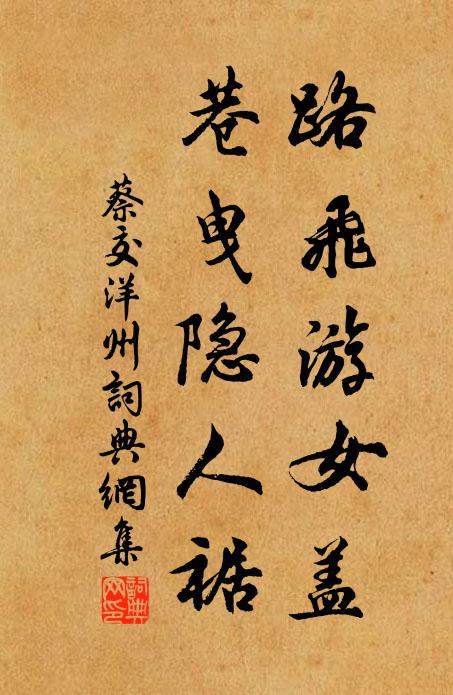 路飛游女盖
巷曳隐人裾
蔡交洋州詞典網集
詞典网印